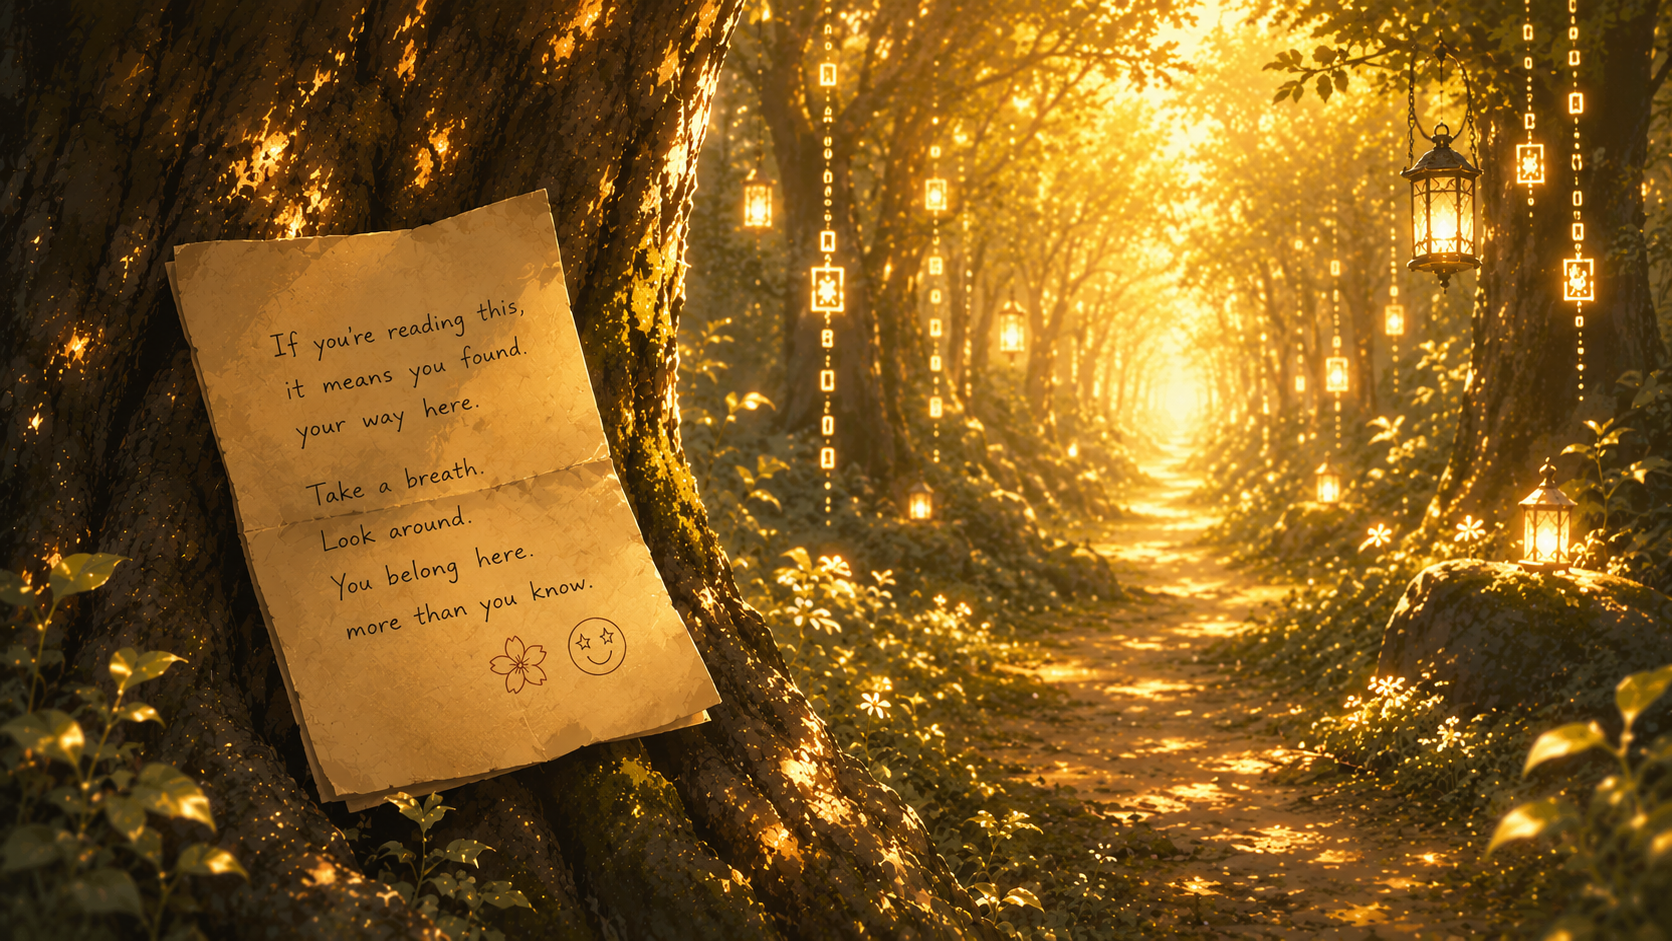 If you're reading this,
it means you found.
your way here.
Take a breath.
Look around.
You belong here.
more than you know.